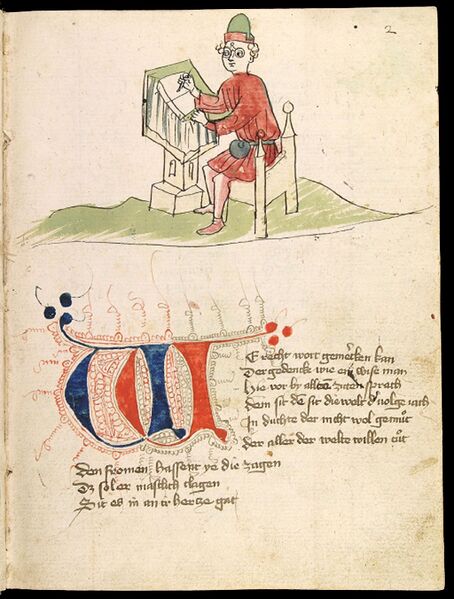 2
WE recht wort gemercken kan
Der gedencke wie en wise man
Hie vor by allen ziten sprach
Dem sit dē sit die welt d' volge iach
In duchte der nicht wol gemůt
Der aller der welte willen tůt
Den fromen hassent ye die zagen
Dz sol er clagen
Sit es in an ir hertze gat